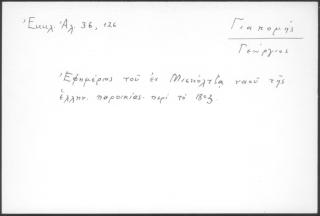 Ἐκκλ. Ἀλ. 36, 126
Γιακομής
Γεώργιος
Ἐφημέριος τοῦ ἐν Μισκόλτζ ναοῦ τῆς
ἑλλην. παροικίας περὶ τὸ 1803.